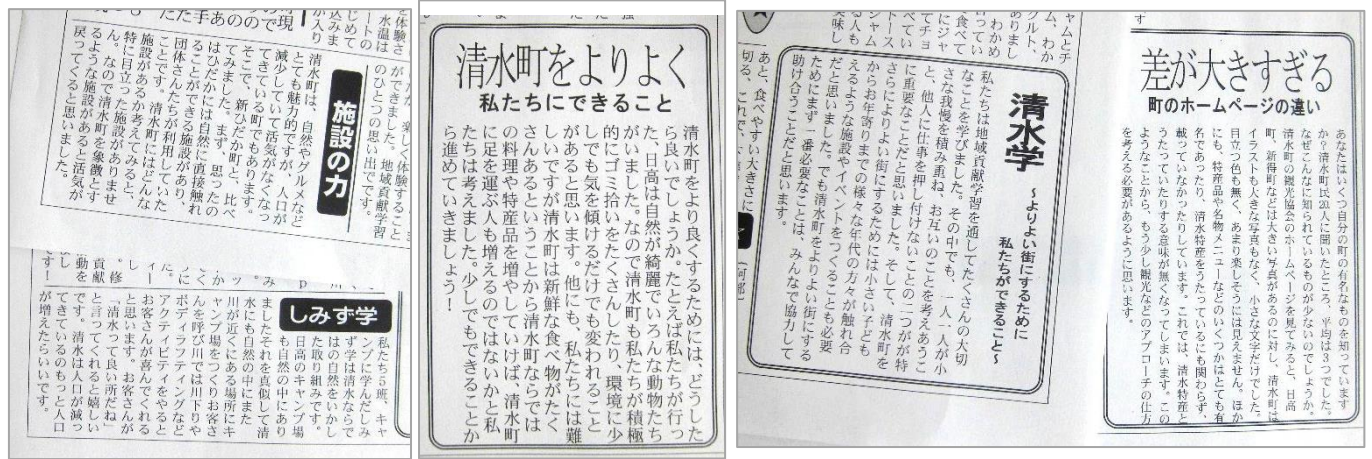 施設の力
清水町は、自然やグルメなど
とても魅力的ですが、人口が
減少していて活気がなくなっ
てきている町でもあります。
そこで、新ひだか町と、比べ
てみました。まず、思ったの
はひだかには自然に直接触れ
ることができる施設があり
団体さんたちが利用していた
ことです。清水町にはどんな
施設があるか考えてみると、
特に目立った施設がありませ
ん。なので清水町を象徴とす
るような施設があると活気が
戻ってくると思いました。
ができました。地域貢献学習
のひとつの思い出です。
しみず学
私たち5班、キャ
ンプに学んだしみ
ず学は清水ならで
はの自然をいかし
た取り組みです。
日高のキャンプ場
も自然の中にあり
ましたそれを真似して清
水にも自然の中にまた
川が近くにある場所にキ
ャンプ場をつくりお客さ
んを呼び川では川下りや
ボディラフティングなど
アクティビティをやると
お客さんが喜んでくれる
と思います。お客さんが
「清水って良い所だね」
と言ってくれると嬉しい
です。清水は人口が減っ
てきているのもっと人口
が増えたらいいです。
清水町をよりよく
私たちにできること
清水町をより良くするためには、どうした
ら良いでしょうか。たとえば私たちが行っ
た、日高は自然が綺麗でいろんな動物たち
がいました。なので清水町も私たちが積極
的にゴミ拾いをたくさんしたり、環境に少
しでも気を傾けるだけでも変われること
があると思います。他にも、私たちには難
しいですが清水町は新鮮な食べ物がたく
さんあるということから清水町ならでは
の料理や特産品を増やしていけば、清水町
に足を運ぶ人も増えるのではないかと私
たちは考えました。少しでもできることか
ら進めていきましょう！
清水学
～よりよい街にするために
私たちができること～
私たちは地域貢献学習を通してたくさんの大切
なことを学びました。その中でも、一人一人が小
さな我慢を積み重ね、お互いのことを考えあうこ
と、他人に仕事を押し付けないことの二つがが特
に重要なことだと思いました。そして、清水町を
さらによりよい街にするためには小さい子ども
からお年寄りまでの様々な年代の方々が触れ合
えるような施設やイベントをつくることも必要
だと思いました。でも清水町をよりよい街にする
ためにまず一番必要なことは、みんなで協力して
助け合うことだと思います。
差が大きすぎる
町のホームページの違い
あなたはいくつ自分の町の有名なものを知っています
か？清水町民20人に聞いたところ、平均は3つでした。
なぜこんなに知られているものが少ないのでしょうか。
清水町の観光協会のホームページを見てみると、日高
町、新得町などは大きい写真があるのに対し、清水町は
イラストも大きな写真もなく、小さな文字だけでした。
目立つ色も無く、あまり楽しそうには見えません。ほか
にも、特産品や名物メニューなどのいくつかはとても有
名であったり、清水特産をうたっているにも関わらず、
載っていなかったりしています。これでは、清水特産と
うたっていたりする意味が無くなってしまいます。この
ようなことから、もう少し観光などのアプローチの仕方
を考える必要があるように思います。